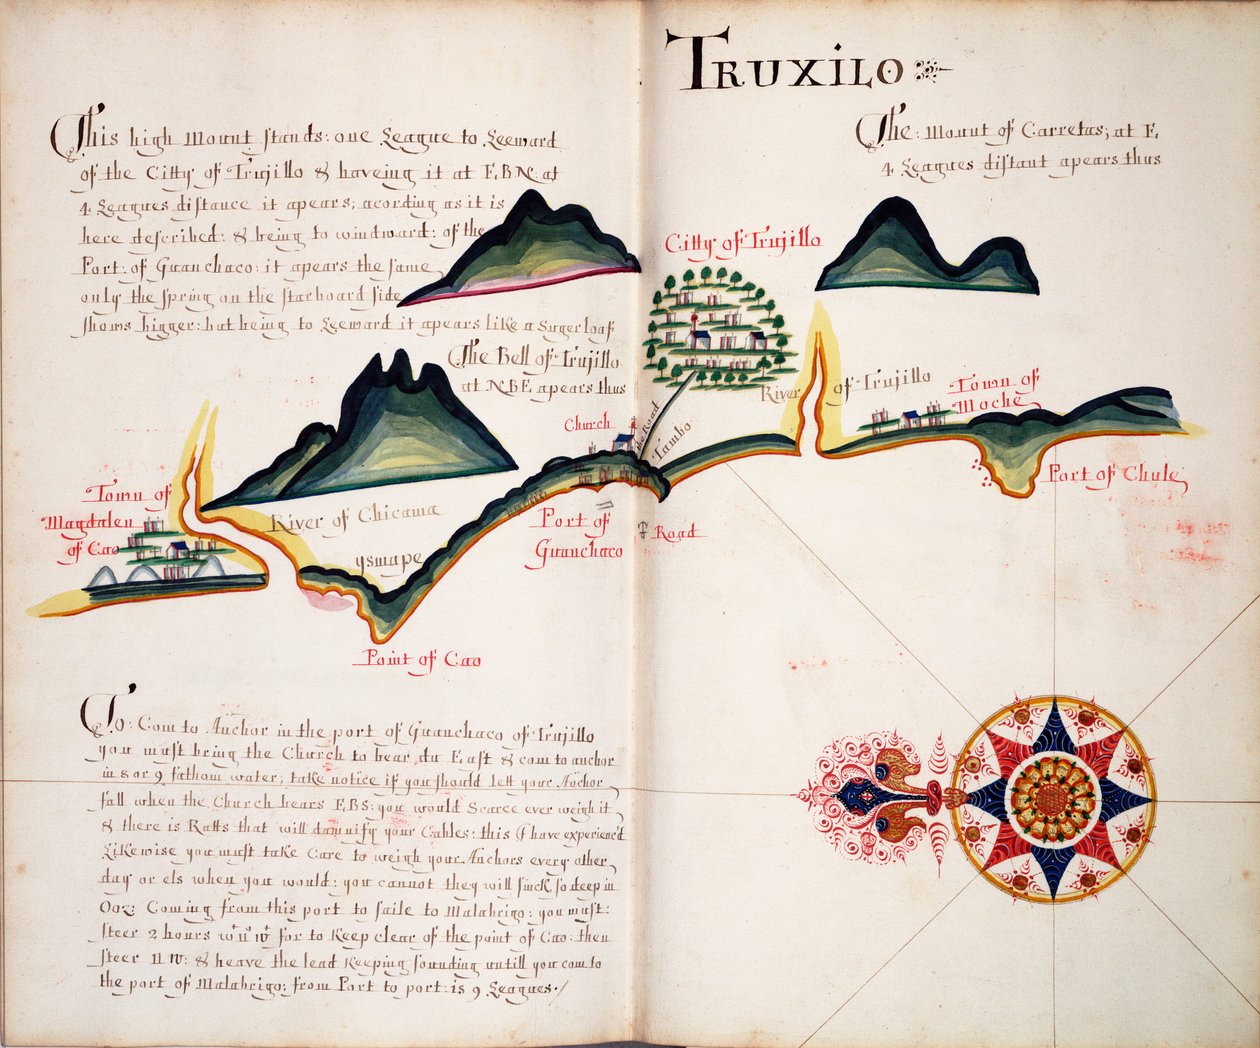 TRUXILO
This high Mount stands: one League to Leeward
of the Citty of Trujillo & haveing it at E,B,N: at
4 Leagues distance it apears; acording as it is
here described: & being to windward: of the
Port: of Guanchaco: it apears the same
only the spring on the starboard side
shows bigger: but being to Leeward it apears like a Sugerloaf
The: Mount of Carretas; at E,
4 Leagues distant apears thus
Citty of Trujillo
The Bell of Trujillo
at N,B,E, apears thus
River of Trujillo
Town of
Moche
Church
the Road
Tambo
Port of Chule
Town of
Magdalen
of Cao
River of Chicama
ysmape
Port of
Guanchaco
Road
Point of Cao
To: Com to Anchor in the port of Guanchaco of Trujillo
you must bring the Church to bear, du East & com to anchor
in 8 or 9 fathom water; take notice if you should lett your Anchor
fall when the Church bears E,B,S: you would Scarce ever weigh it
& there is Ratts that will damnify your Cables: this I have experienc'd
Likewise you must take Care to weigh your Anchors every other
day or els when you would: you cannot they will sinck so deep in
Ooz: Coming from this port to saile to Malabrigo: you must:
steer 2 hours for to Keep clear of the point of Cao: then
steer N W: & heave the lead Keeping sounding untill you com to
the port of Malabrigo: from Port to port: is 9 Leagues./